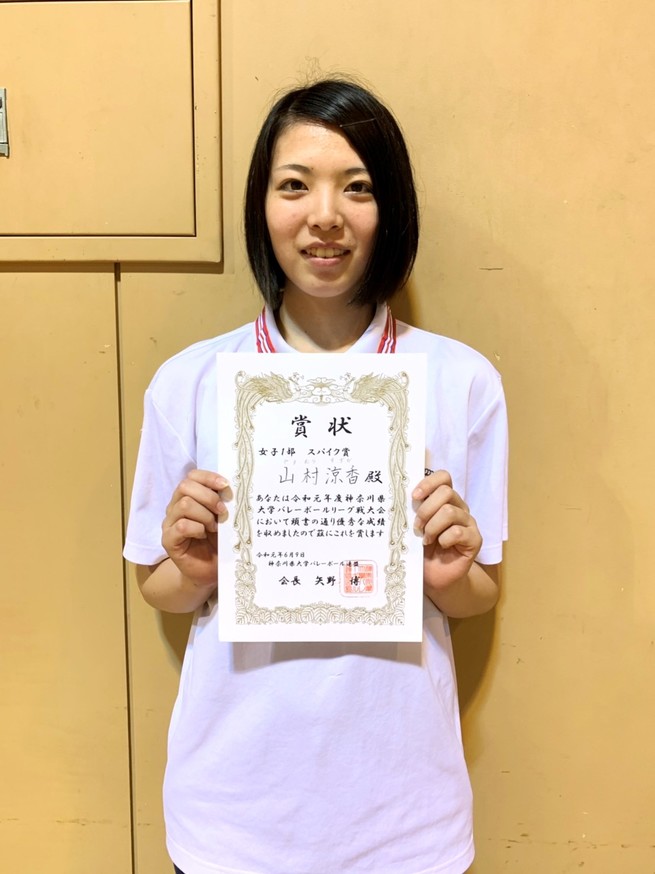 賞状
女子1部 スパイク賞
山村涼香殿
あなたは令和元年度神奈川県
大学バレーボールリーグ戦大会
において頭書の通り優秀な成績
を収めましたので茲にこれを賞します
令和元年6月9日
神奈川県大学バレーボール連盟
会長 矢野 博